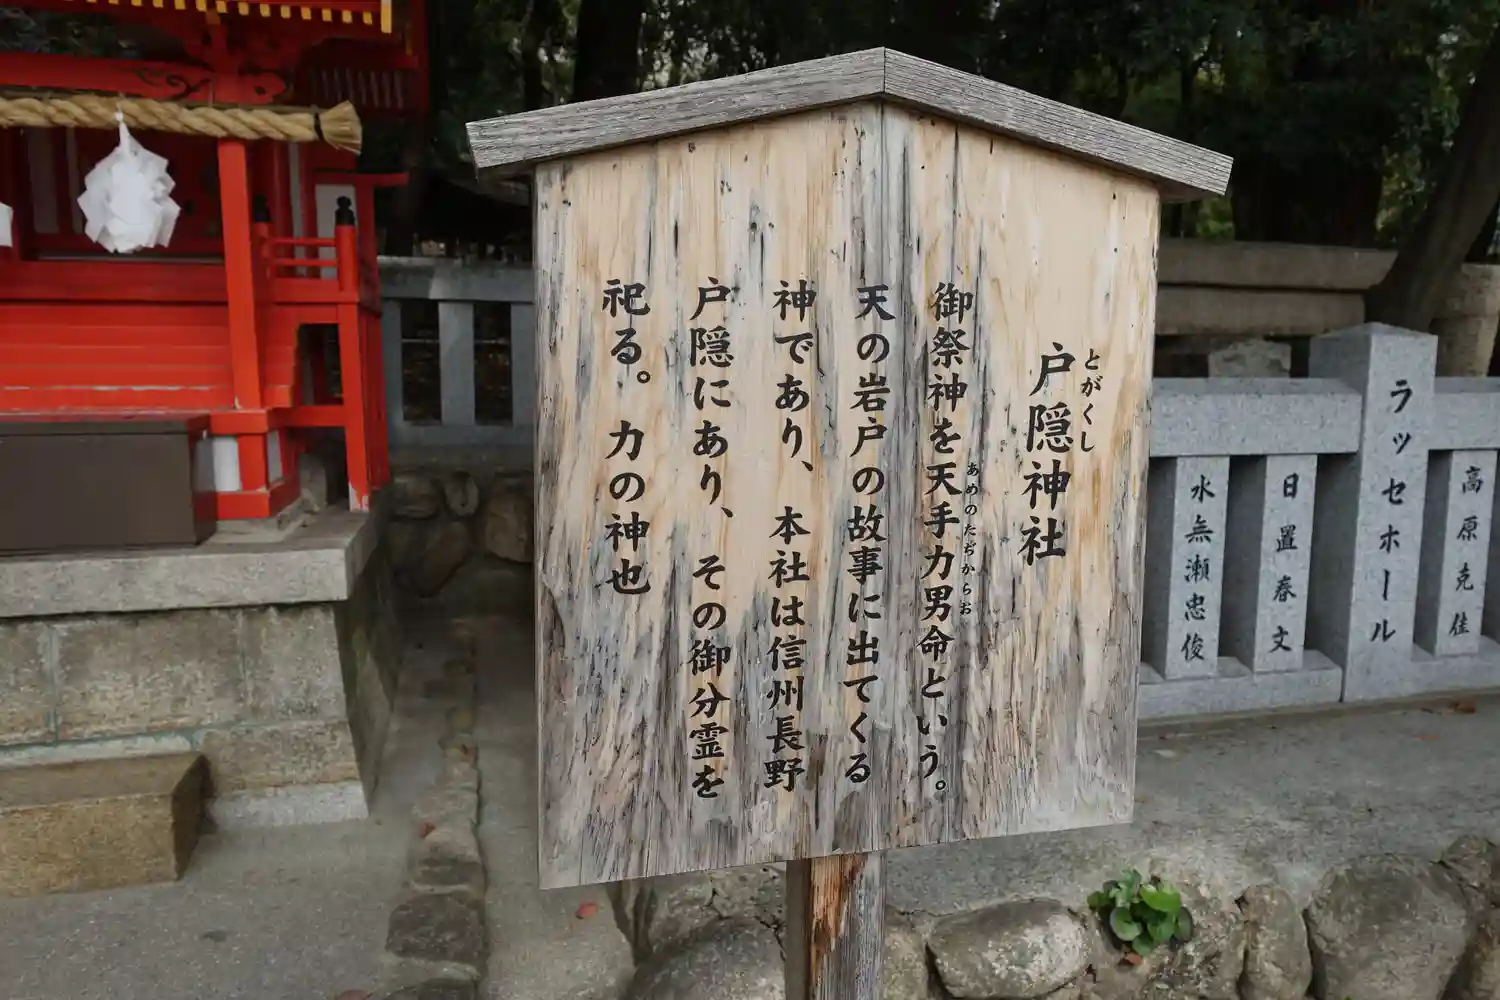 戸隠神社
とがくし
御祭神を天手力男命という。
あめのたぢからお
天の岩戸の故事に出てくる
神であり、本社は信州長野
戸隠にあり、その御分霊を
祀る。力の神也
高原克佳
ラッセホール
日置春文
水無瀬忠俊